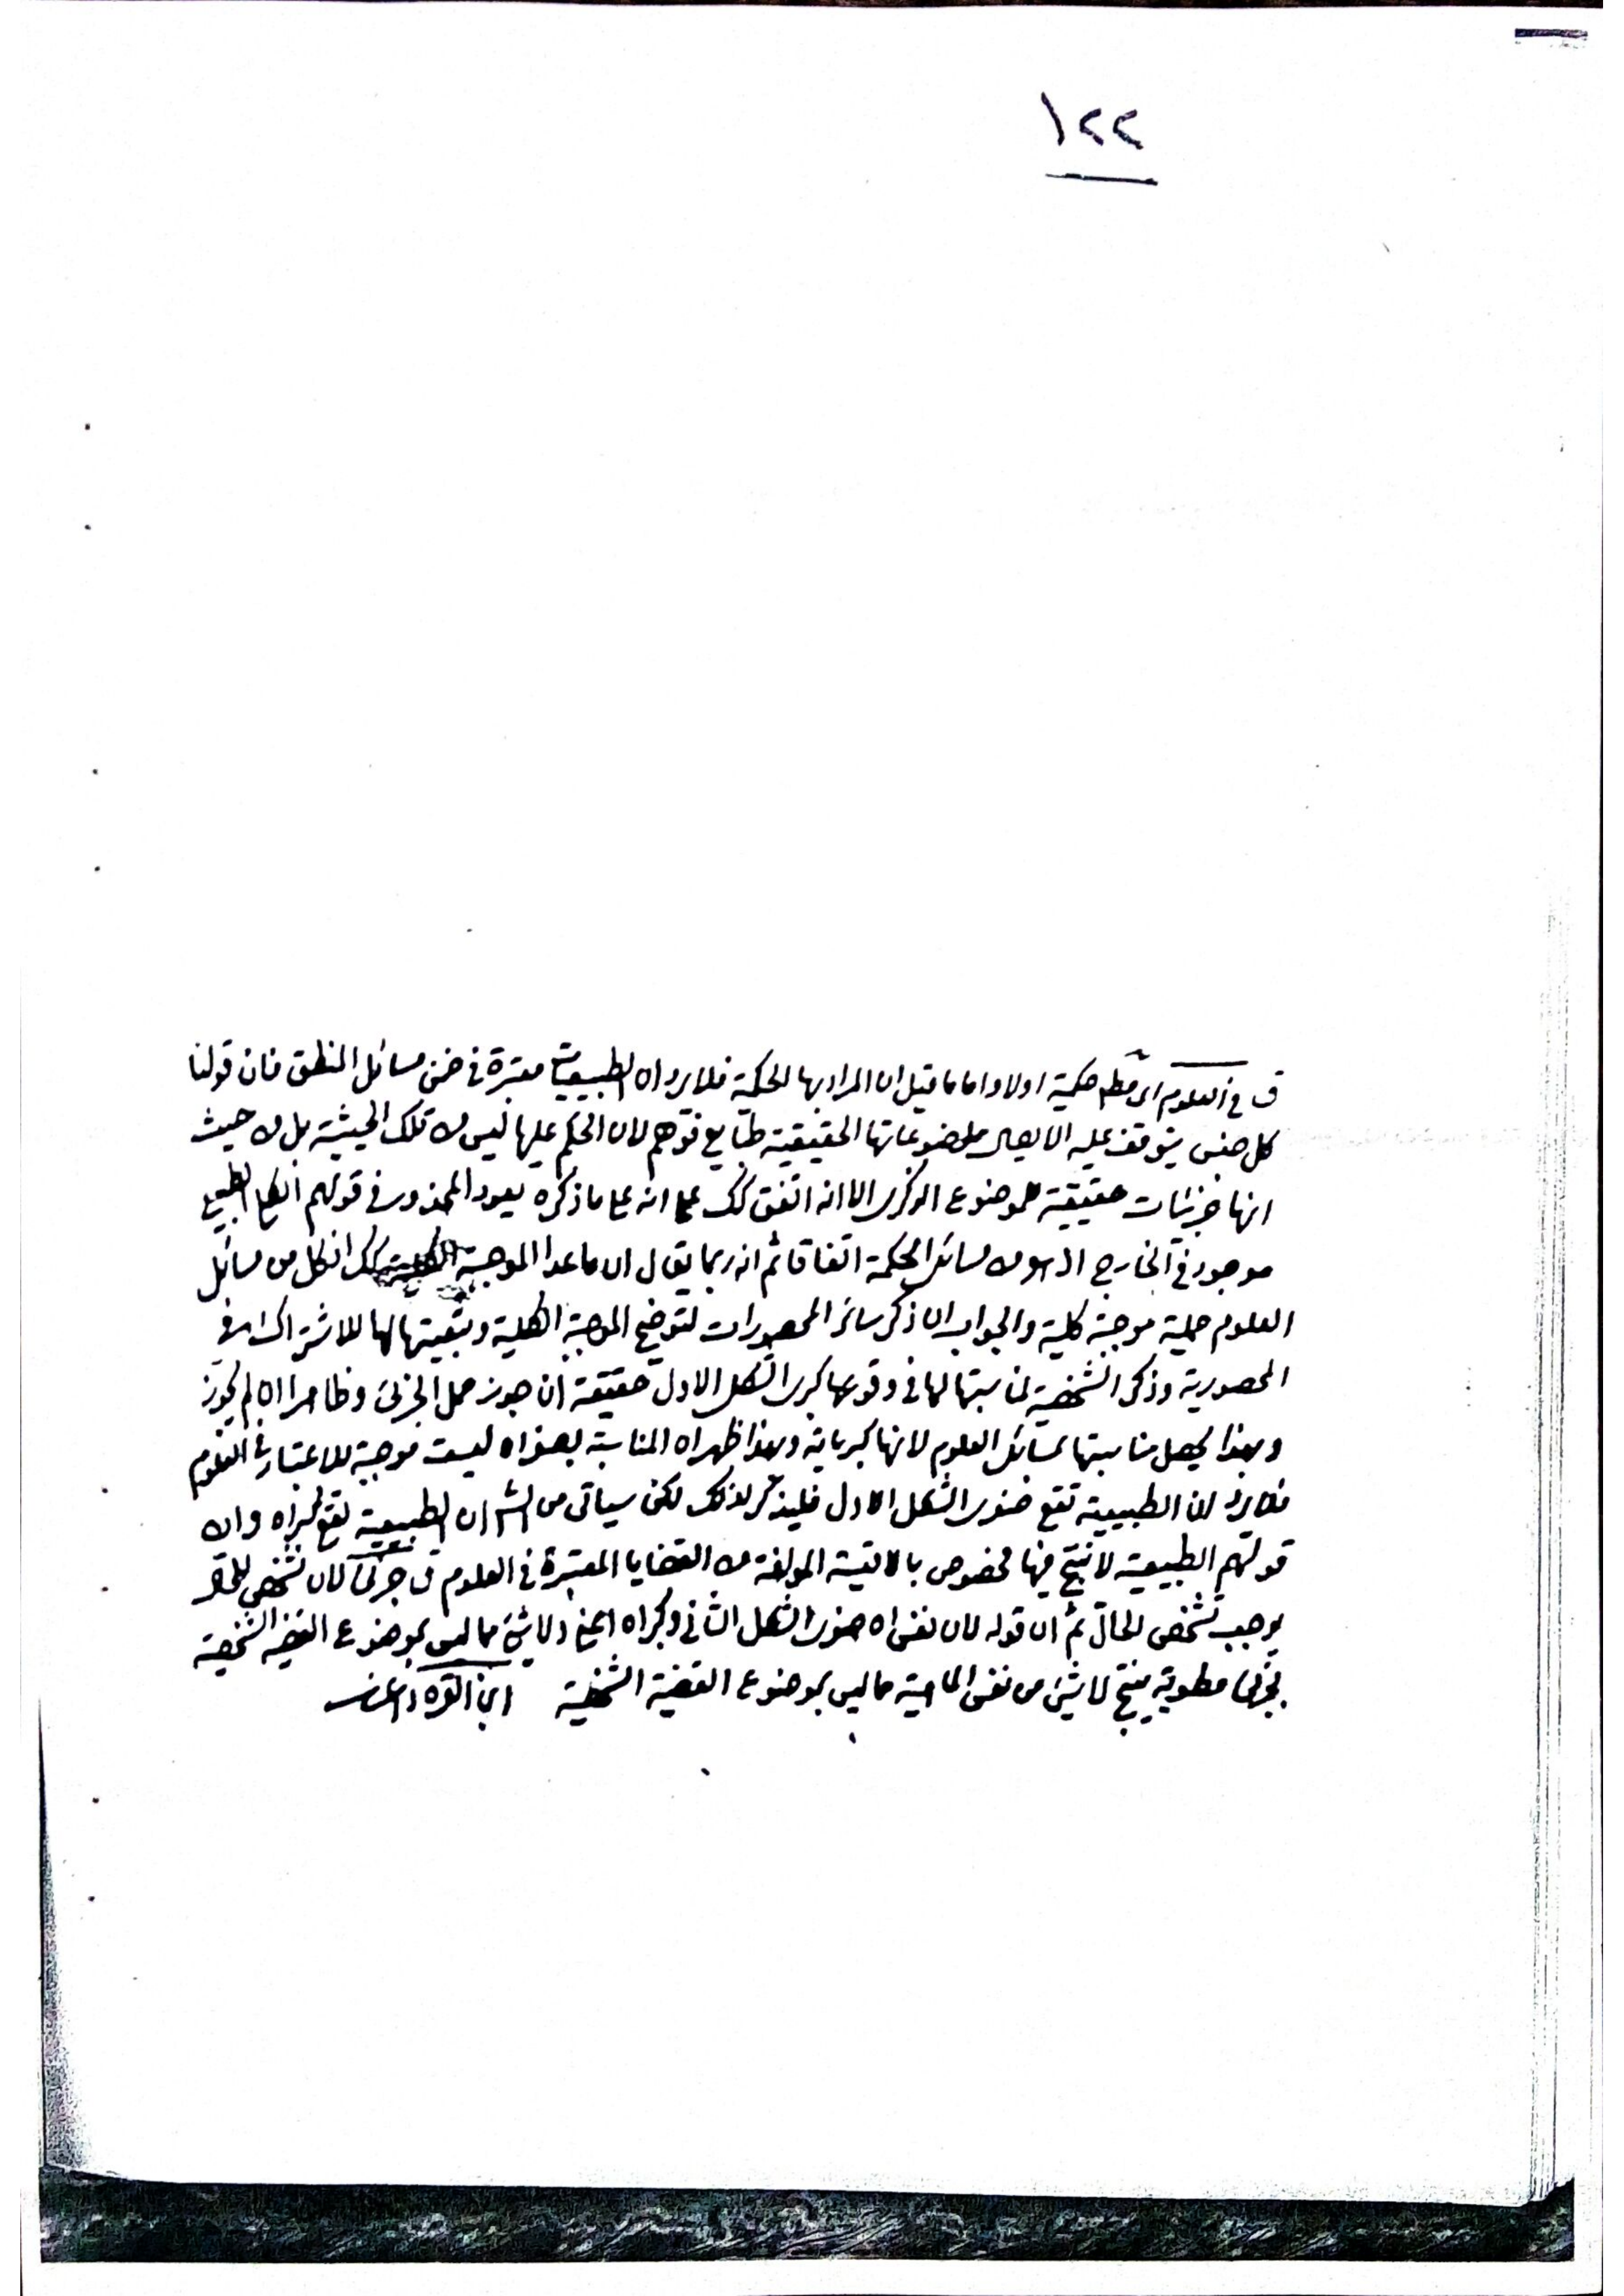 ١٢٢
ق في العلوم اى مط حكمية اولا واما ما قيل ان المراد بها الحكمة فلا يرد ان الطبيعيات معتبرة في ضمن مسائل المنطق فان قولنا
كل جنس يتوقف عليه الايصال موضوعاتها الحقيقية طبايع فتوهم لان الحكم عليها ليس من تلك الحيثية بل من حيث
انها جزئيات حقيقية للموضوع الذكرى الا انه اتفق كك على انه على ما ذكره يعود المحذور في قولهم الكلى الطبيعى
موجود في الخارج اذ هو من مسائل الحكمة اتفاقا ثم انه ربما يقال ان ما عدا الموجبة الكلية كك اذ كل من مسائل
العلوم حملية موجبة كلية والجواب ان ذكر سائر المحصورات لتوضيح الموجبة الكلية وتبعيتها لها للاشتراك في
المحصورية وذكر الشخصية لمناسبتها لها في وقوعها كبرى الشكل الاول حقيقة ان جوز حمل الجزئى وظاهرا ان لم يجوز
وبهذا يحصل مناسبتها بمسائل العلوم لانها كبريات وبهذا ظهر ان المناسبة بصغراه ليست موجبة للاعتبار في العلوم
فلا يرد ان الطبيعية تقع صغرى الشكل الاول فليذكر لذلك لكن سياتى من الش ان الطبيعية تقع كبراه وان
قولهم الطبيعية لا تنتج فيها مخصوص بالاقيسة المؤلفة من القضايا المعتبرة في العلوم ق جزئى لان تشخص المحل
يوجب تشخص الحال ثم ان قوله لان نفس اه صغرى الشكل الثانى وكبراه اعنى ولا شئ مما ليس بموضوع القضية الشخصية
بجزئى مطوية ينتج لا شئ من نفس الماهية مما ليس بموضوع القضية الشخصية ابن القره داغى